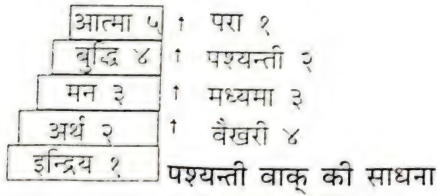 आत्मा ५ ↑ परा १
बुद्धि ४ ↑ पश्यन्ती २
मन ३ ↑ मध्यमा ३
अर्थ २ ↑ वैखरी ४
इन्द्रिय १ पश्यन्ती वाक् की साधना